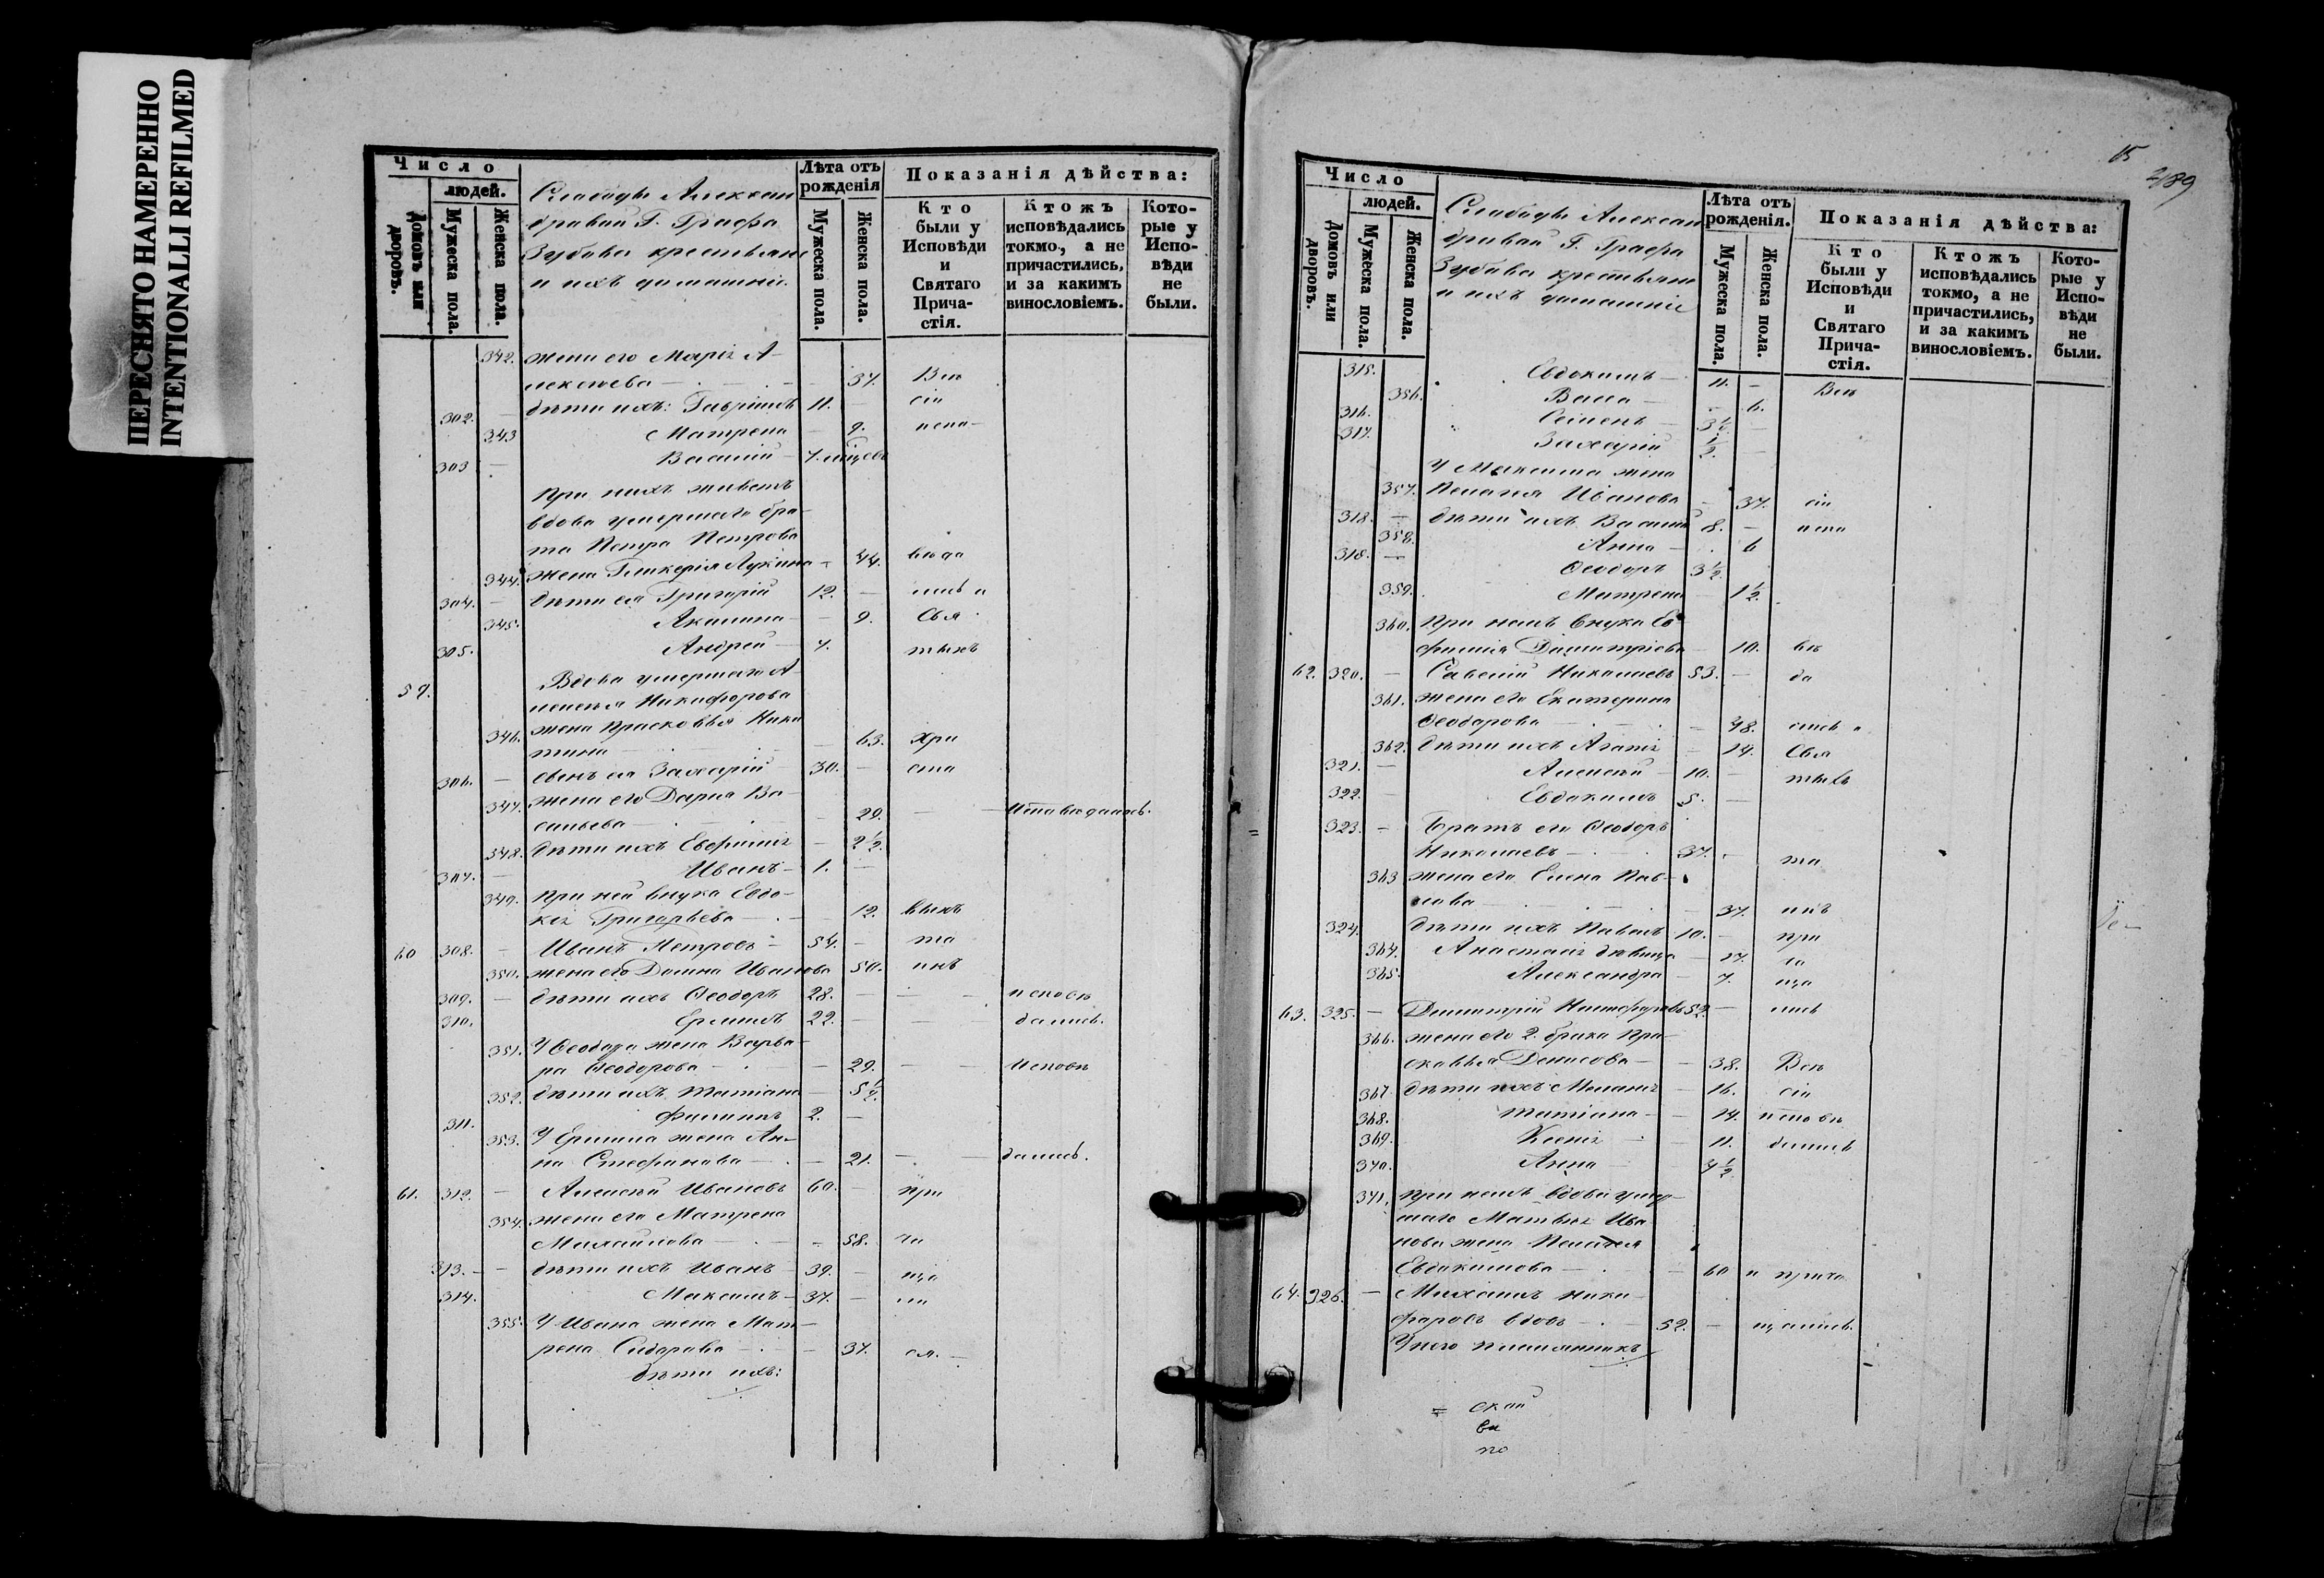 ПЕРЕСНЯТО НАМЕРЕННО
INTENTIONALLI REFILMED
Число
людей.
Домовъ или дворовъ.
Мужеска пола.
Женска пола.
Слабоды Алексан
дравай Г. Графа
Зубава крестьяне
и ихъ домашніи.
Лѣта отъ рожденія
Мужеска пола.
Женска пола.
Показанія дѣйства:
Кто были у Исповѣди и Святаго Прича-стія.
Ктожъ исповѣдались токмо, а не причастились, и за какимъ винословіемъ.
Кото-рые у Испо-вѣди не были.
342. жена его Марія А-
лексѣева — 37. Всѣ
302. — дѣти ихъ: Гавріилъ 11. — сіи
343 Матрена — 9. испо-
303 — Василий — 7. мѣсецов
При нихъ живетъ
вдова умершаго бра-
та Петра Петрова
344. жена Гликерія Лукина — 44. вѣда
304. — дѣти ея Григорій 12. — лись и
345. Акилина — 9. Свя
305. Андрей — 7. тыхъ
59. Вдова умершаго А-
лексѣя Никифорова
346. жена Прасковья Ники
тина — 63. Хри
306. — сынъ ея Захарій 30. — ста
347. жена его Дарья Ва-
сильева — 29. — Исповѣдались.
348. дѣти ихъ Евфимія — 2½
307. — Иванъ — 1. —
349. При ней внука Евдо-
кія Григорьева — 12. выхъ
60 308. — Иванъ Петровъ — 54. — та
350. жена его Домна Иванова 50. инъ
309. — дѣти ихъ Ѳеодоръ 28. — исповѣ
310. Ермилъ 22. — — дались.
351. У Ѳеодора жена Варва-
ра Ѳеодорова — 29. — Исповѣ
352. дѣти ихъ Татіана — 5½
311. Филиппъ 2. —
353. У Ермила жена Ан-
на Стефанова — 21. — дались.
61. 312. — Алексѣй Ивановъ 60. — при
354. жена его Матрена
Михайлова — 58. ча
313. — — дѣти ихъ Иванъ — 39. — ща
314. Максимъ — 37. — ли
355. У Ивана жена Мат-
рена Сидорова — 37. ся. —
дѣти ихъ:
15
289
Число
людей.
Домовъ или дворовъ.
Мужеска пола.
Женска пола.
Слабоды Алексан
дравай Г. Графа
Зубава крестьяне
и ихъ домашніе
Лѣта отъ рожденія.
Мужеска пола.
Женска пола.
Показанія дѣйства:
Кто были у Исповѣди и Святаго Прича-стія.
Ктожъ исповѣдались токмо, а не причастились, и за какимъ винословіемъ.
Кото-рые у Испо-вѣди не были.
315. Евдокимъ — 11. — Всѣ
356. Васса — 6.
316. Сѣменъ — 3½ —
317. Захарій ½ —
У Максима жена
357. Пелагія Иванова — 37. сіи
318. — дѣти ихъ Василій 8. — испо
358. Анна — 6
318. — Ѳеодоръ 3½
359. Матрена — 1½
360. При немъ внука Ев
фимія Димитріева 10. вѣ
62. 320. — Савелій Николаевъ 53. — да
361. жена его Екатерина
Ѳеодорова — 48. лись и
362. дѣти ихъ Агапія — 14. Свя
321. — Алексѣй — 10. — тыхъ
322. — Евдокимъ 5. —
= 323. — Братъ его Ѳеодоръ
Николаевъ — 37. — та
363 жена его Елена Пав-
лова — 37. инъ
324. дѣти ихъ Павелъ 10. — при
364. Анастасія дѣвица — 17. ча
365. Александра — 7. ща
63. 325. — Димитрій Никифоровъ 52. — лись
366. жена его 2. брака Пра-
сковья Денисова — 38. Всѣ
367. дѣти ихъ Меланія — 16. сіи
368. Татіана — 14. исповѣ
369. Ксенія — 11. дались
370. Анна — 4½
371. При немъ вдова умер-
шаго Матвея Ива
нова жена Пелагея
Евдокимова — 60 и прича
64. 326. — Михаилъ Ники-
форовъ вдовъ — 52. — щались.
У него племянникъ